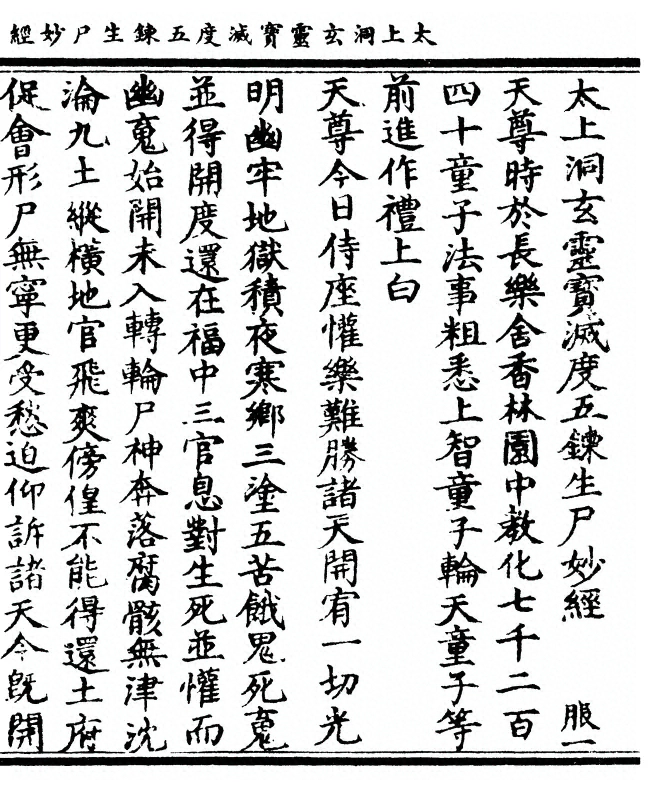 太上洞玄靈寶滅度五鍊生尸妙經
太上洞玄靈寶滅度五鍊生尸妙經 服一
天尊時於長樂舍香林園中教化七千二百
四十童子法事粗悉上智童子輪天童子等
前進作禮上白
天尊今日侍座懽樂難勝諸天開宥一切光
明幽牢地獄積夜寒鄉三塗五苦餓鬼死䰟
並得開度還在福中三官息對生死並懽而
幽䰟始開未入轉輪尸神奔落腐骸無津沈
淪九土縱橫地官飛爽傍偟不能得還土府
促會形尸無寧更受愁迫仰訴諸天今旣開